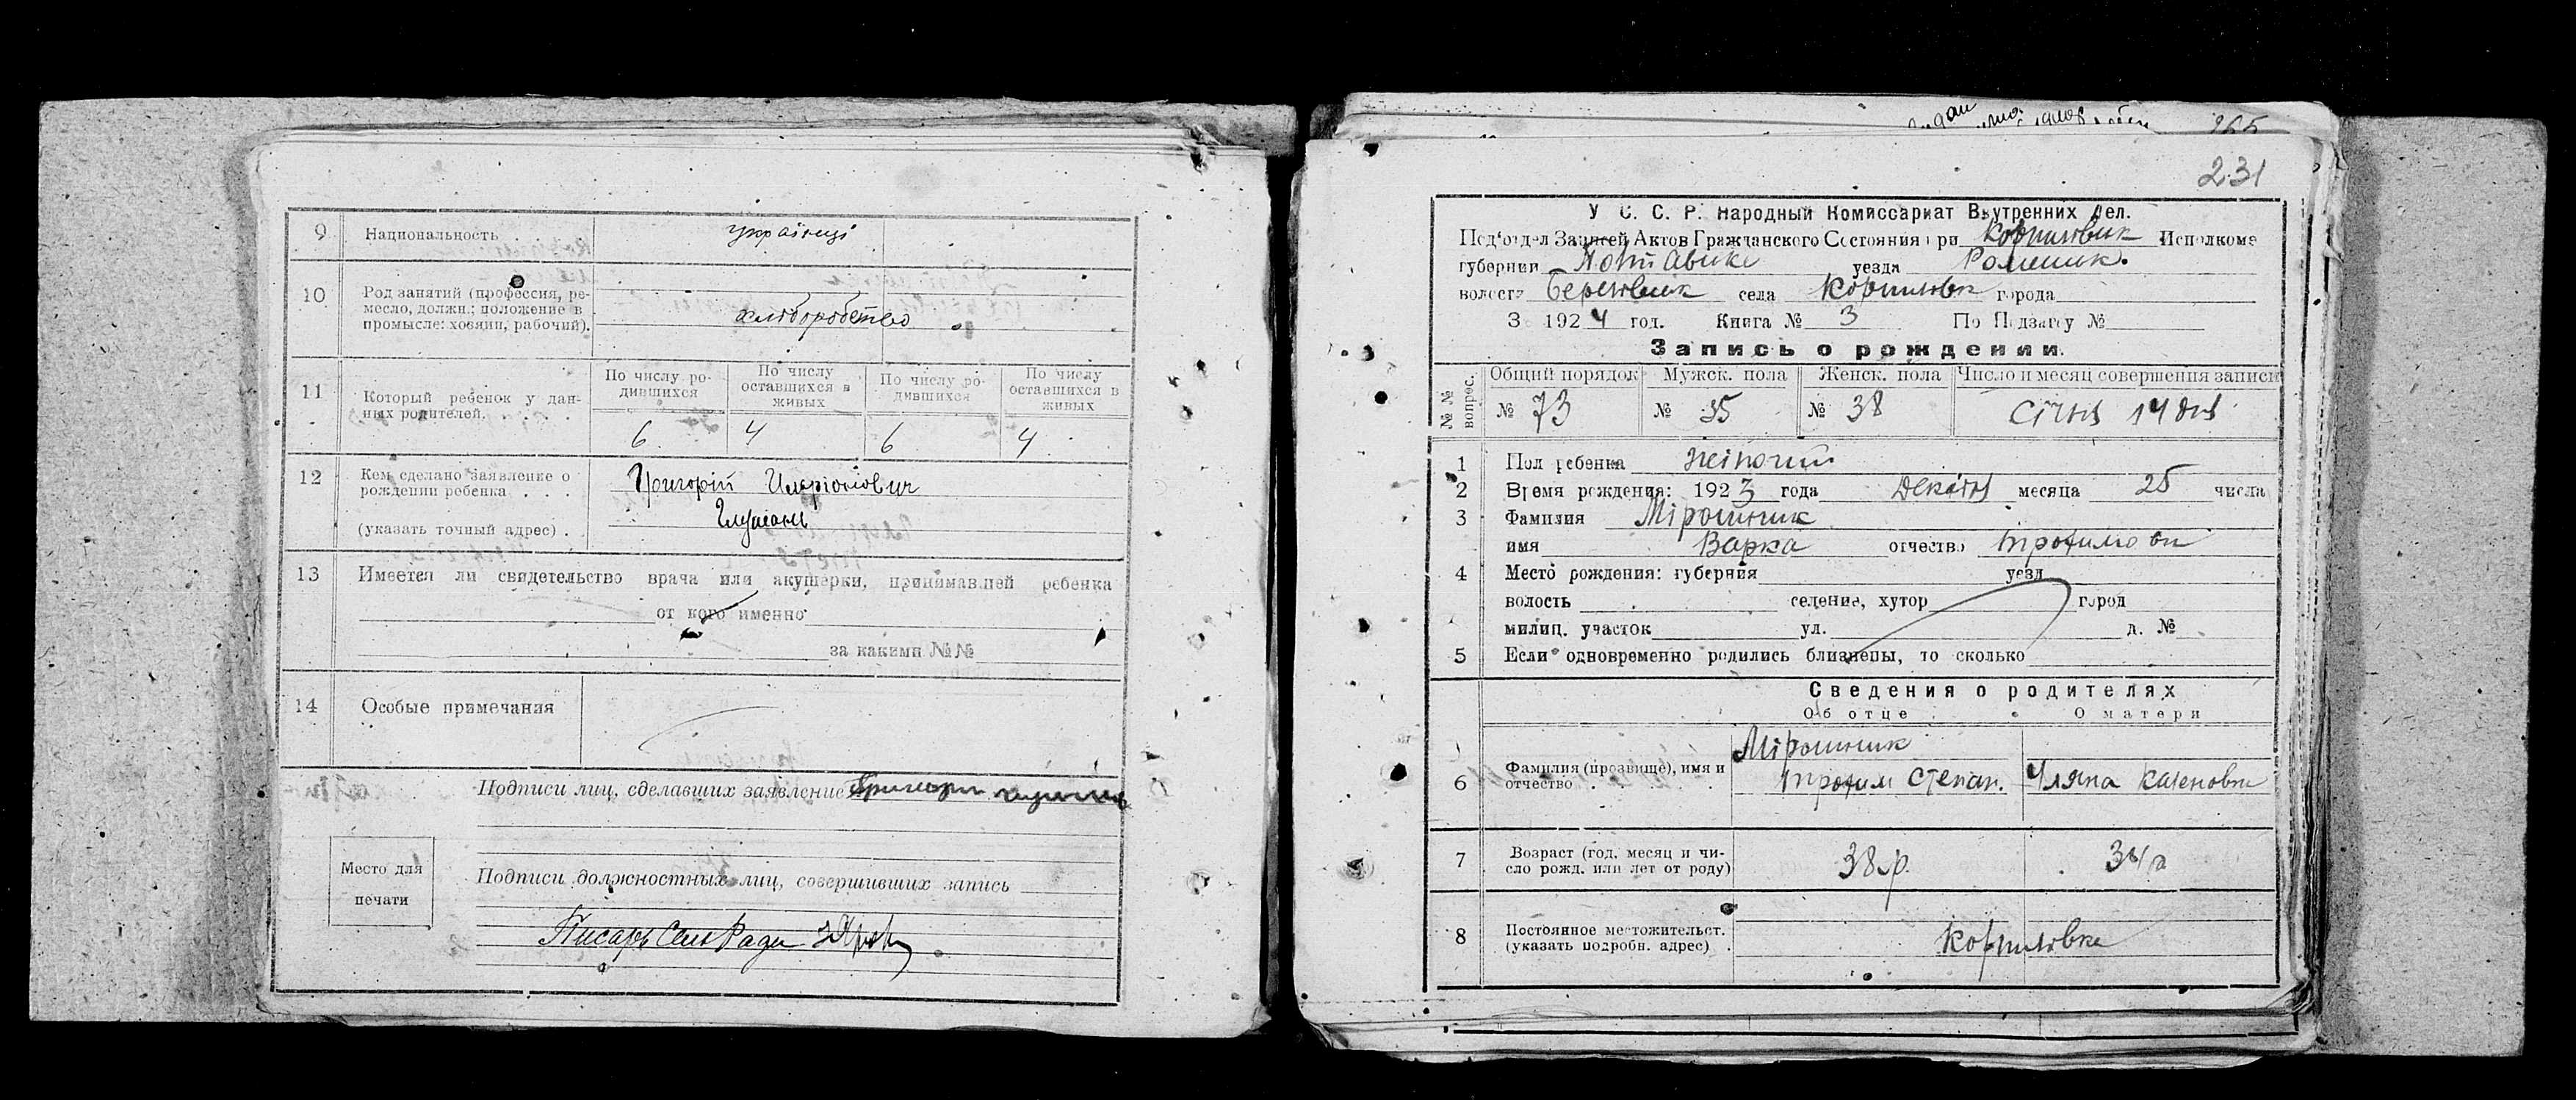 9 Национальность українці
10 Род занятий (профессия, ре-
месло, должн.; положение в
промысле: хозяин, рабочий). хліборобство
11 Который ребенок у дан-
ных родителей.
По числу ро-
дившихся
По числу
оставшихся в
живых
По числу ро-
дившихся
По числу
оставшихся в
живых
6 4 6 4
12 Кем сделано заявление о
рождении ребенка . . .
(указать точный адрес) .
Григорій Иларіонович
13 Имеется ли свидетельство врача или акушерки, принимавшей ребенка
от кого именно
за какими №№
14 Особые примечания
Подписи лиц, сделавших заявление
Место для
печати
Подписи должностных лиц, совершивших запись
Писарь Сель Ради
265
231
У С. С. Р. Народный Комиссариат Внутренних Дел.
Под'отдел Записей Актов Гражданского Состояния при Исполкоме
губернии Полтавске уезда Роменск.
волости села города
З 1924 год. Книга № 3 По Подзагсу №
Запись о рождении.
№№ вопрос.
Общий порядок Мужск. пола Женск. пола Число и месяц совершения записи
№ 73 № 35 № 38 Січня 14 дня
1 Пол ребенка
2 Время рождения: 1923 года Декабря месяца 25 числа
3 Фамилия Мірошник
имя Варка отчество Трофимовн
4 Место рождения: губерния уезд
волость селение, хутор город
милиц. участок ул. д. №
5 Если одновременно родились близнецы, то сколько
Сведения о родителях
Об отце О матери
6 Фамилия (прозвище), имя и
отчество . . . . .
Мірошник
Трофим Степан. Уляна
7 Возраст (год, месяц и чи-
сло рожд. или лет от роду) 38 р. 34 р
8 Постоянное местожительст.
(указать подробн. адрес) .